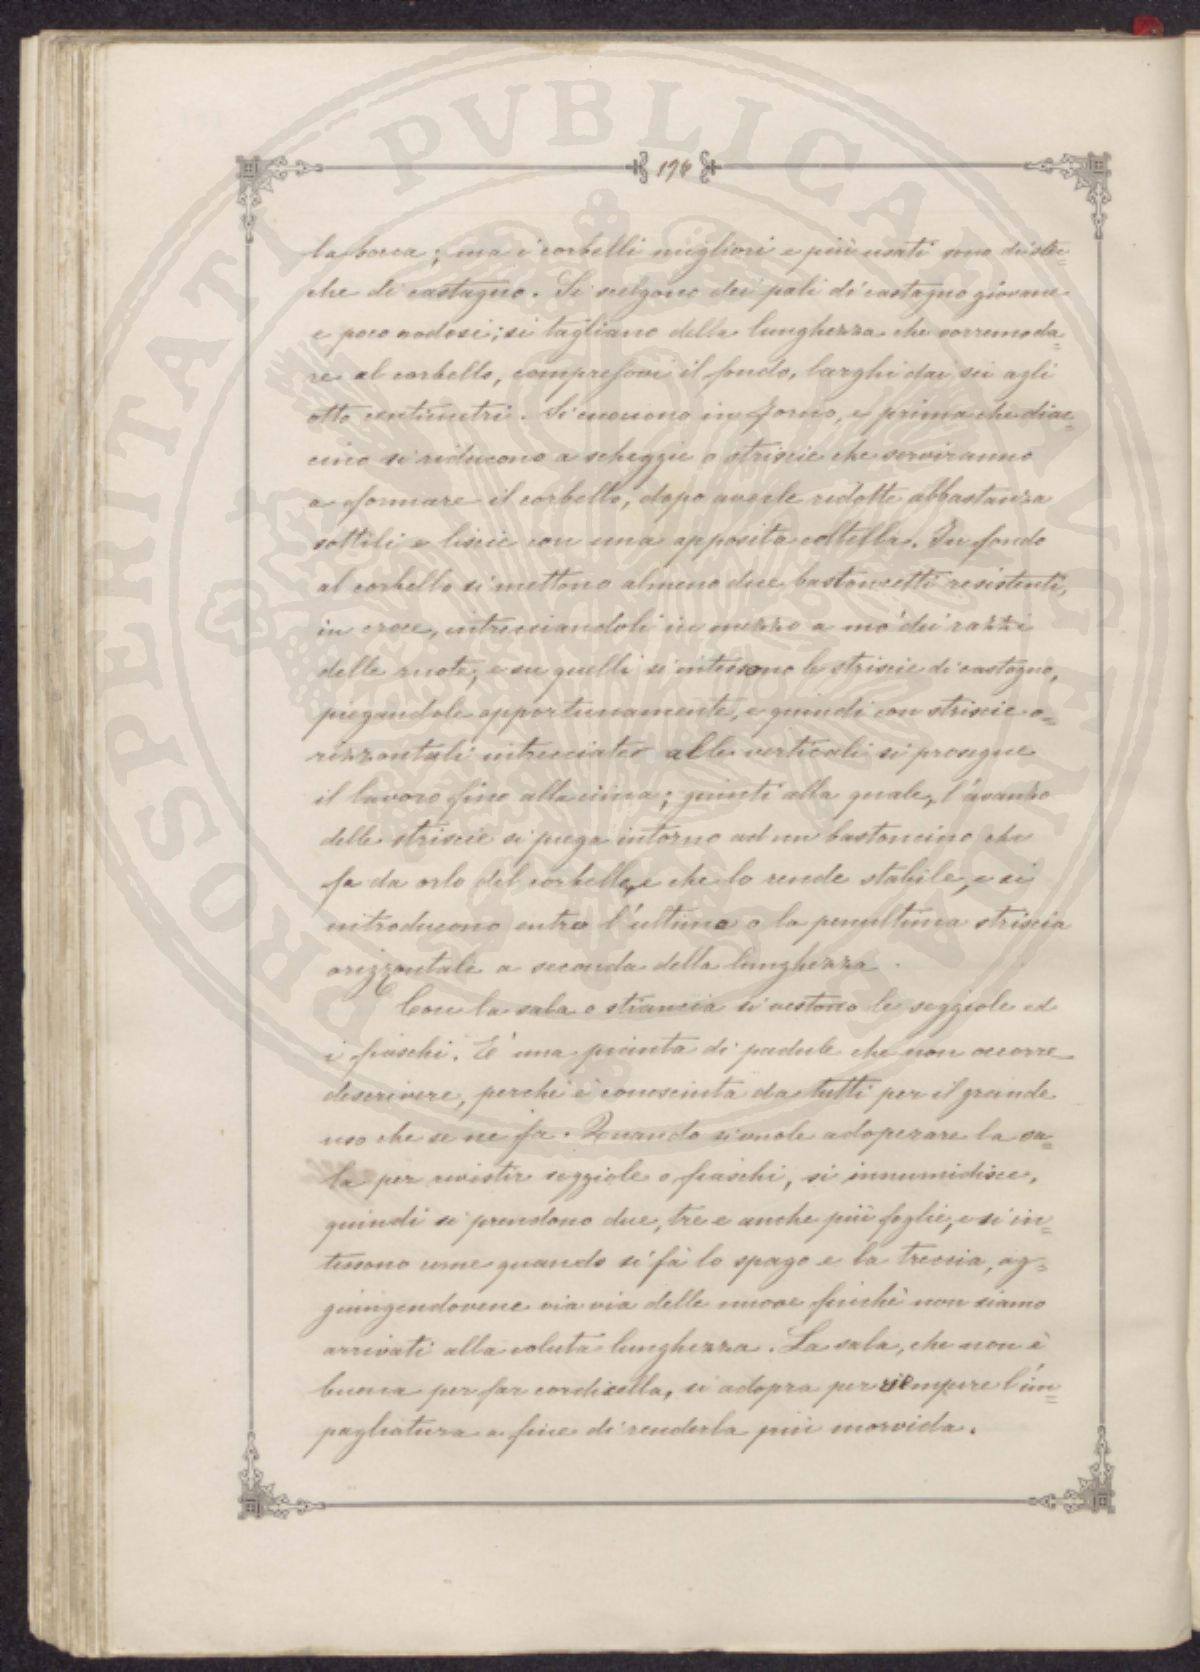 196
la bocca; ma i corbelli migliori e più usati sono di stec=
che di castagno. Si scelgono dei pali di castagno giovane
e poco nodosi; si tagliano della lunghezza che vorremo da=
re al corbello, compresovi il fondo, larghi dai sei agli
otto centimetri. Si cuociono in forno, e prima che diac=
cino si riducono a scheggie o striscie che serviranno
a formare il corbello, dopo averle ridotte abbastanza
sottili e liscie con una apposita coltella. In fondo
al corbello si mettono almeno due bastoncetti resistenti,
in croce, intrecciandoli in mezzo a mo' dei razzi
delle ruote, e su quelli si intessono le striscie di castagno,
piegandole opportunamente, e quindi con striscie o=
rizzontali intrecciate alle verticali si prosegue
il lavoro fino alla cima; giunti alla quale, l'avanzo
delle striscie si piega intorno ad un bastoncino che
fa da orlo del corbello, e che lo rende stabile, e si
introducono entro l'ultima o la penultima striscia
orizzontale a seconda della lunghezza.
Con la sala o stiancia si vestono le seggiole ed
i fiaschi. E' una pianta di padule che non occorre
descrivere, perchè è conosciuta da tutti per il grande
uso che se ne fa. Quando si vuole adoperare la sa=
la per rivestir seggiole o fiaschi, si innumidisce,
quindi si prendono due, tre e anche più foglie, e si in=
tessono come quando si fà lo spago e la treccia, ag=
giungendovene via via delle nuove finchè non siamo
arrivati alla voluta lunghezza. La sala, che non è
buona per far cordicella, si adopra per riempire l'im=
pagliatura a fine di renderla più morvida.
PROSPERITATI PUBLICAE AUGENDAE